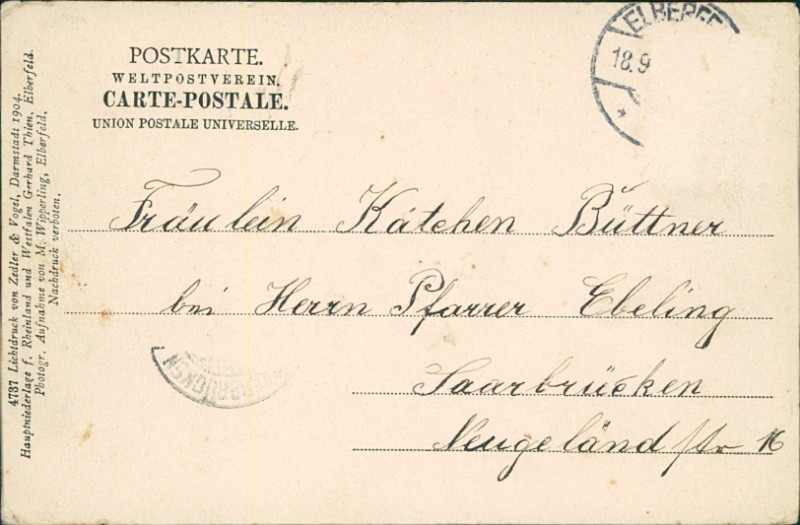 POSTKARTE.
WELTPOSTVEREIN.
CARTE-POSTALE.
UNION POSTALE UNIVERSELLE.
ELBERFE
18.9
Fräulein Kätchen Büttner
bei Herrn Pfarrer Ebeling
Saarbrücken
Neugeländstr 16
4737 Lichtdruck von Zedler & Vogel, Darmstadt 1904.
Hauptniederlage f. Rheinland und Westfalen Gerhard Thien, Elberfeld.
Photogr. Aufnahme von M. Wipperling, Elberfeld.
Nachdruck verboten.